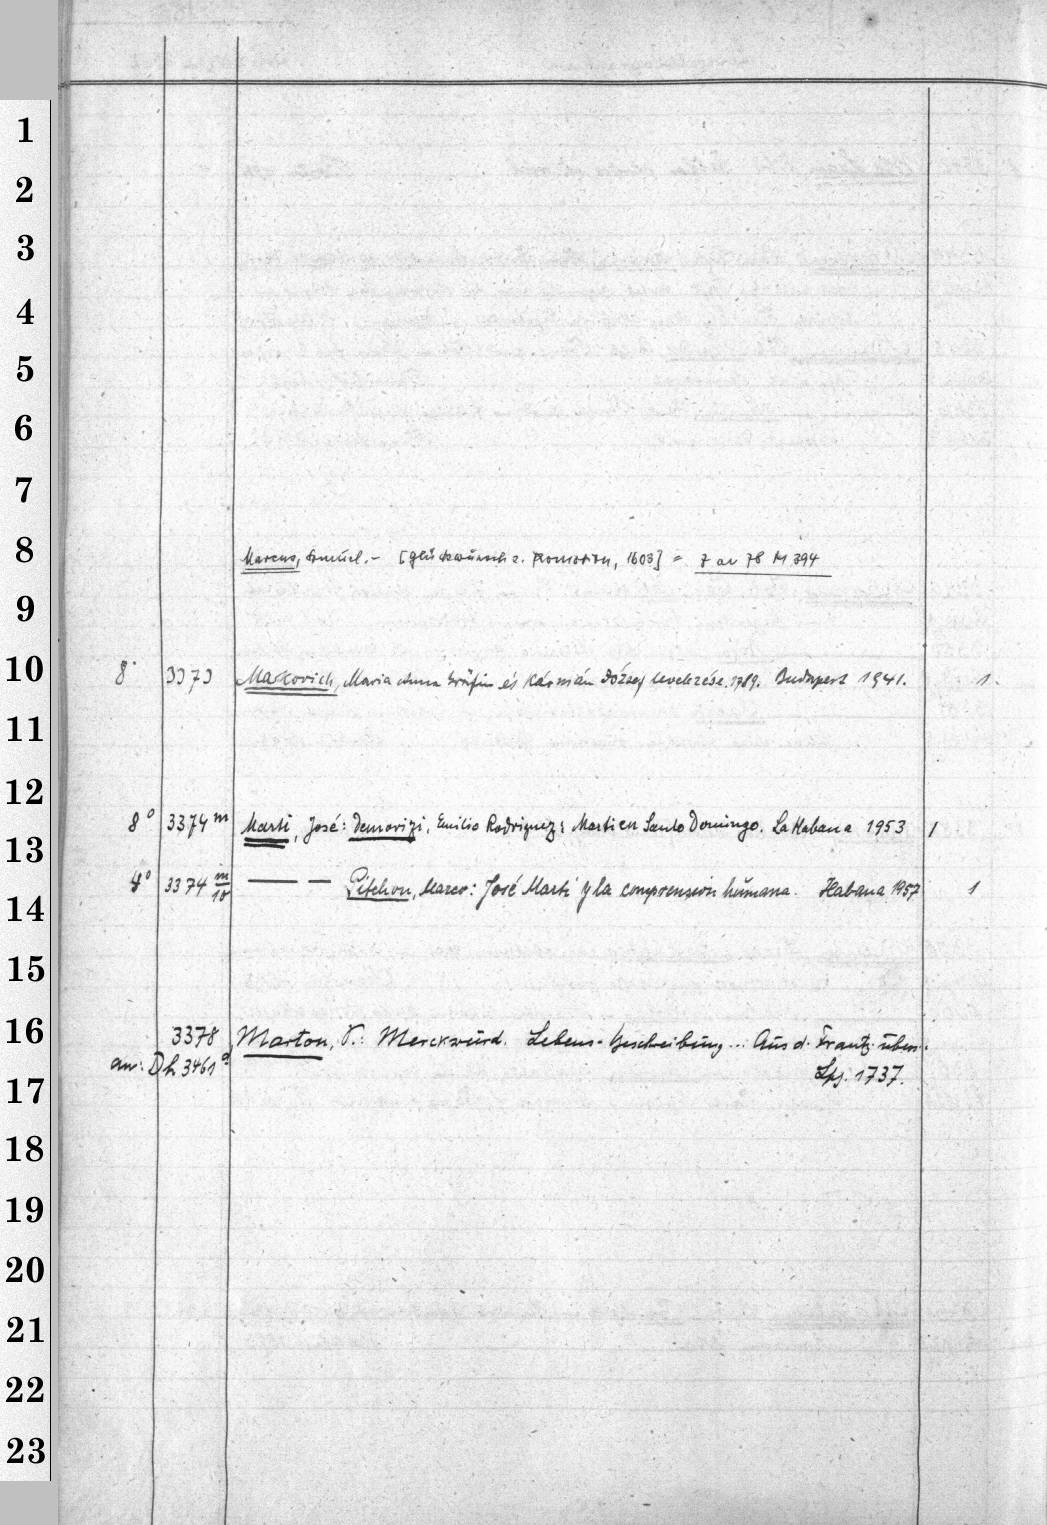 1
2
3
4
5
6
7
8
Marcus, Samuel. - [Glückwünsch z. Promotion, 1603] = 7 an 78 M 394
9
10
8° 3373 Markovich, Maria Anna Gräfin és Kármán József levelezése. 1789. Budapest 1941. 1.
11
12
8° 3374 m Marti, José: Demorizi, Emilio Rodriguez: Marti en Santo Domingo. La Habana 1953 1
13
4° 3374 m/10 — — Pitchon, Marco: José Marti y la comprension humana. Habana 1957 1
14
15
16
3378 Marton, V.: Merckwürd. Lebens-Beschreibung... Aus d. Frantz. übers.
an: Dh 3461 a Lpz. 1737.
17
18
19
20
21
22
23